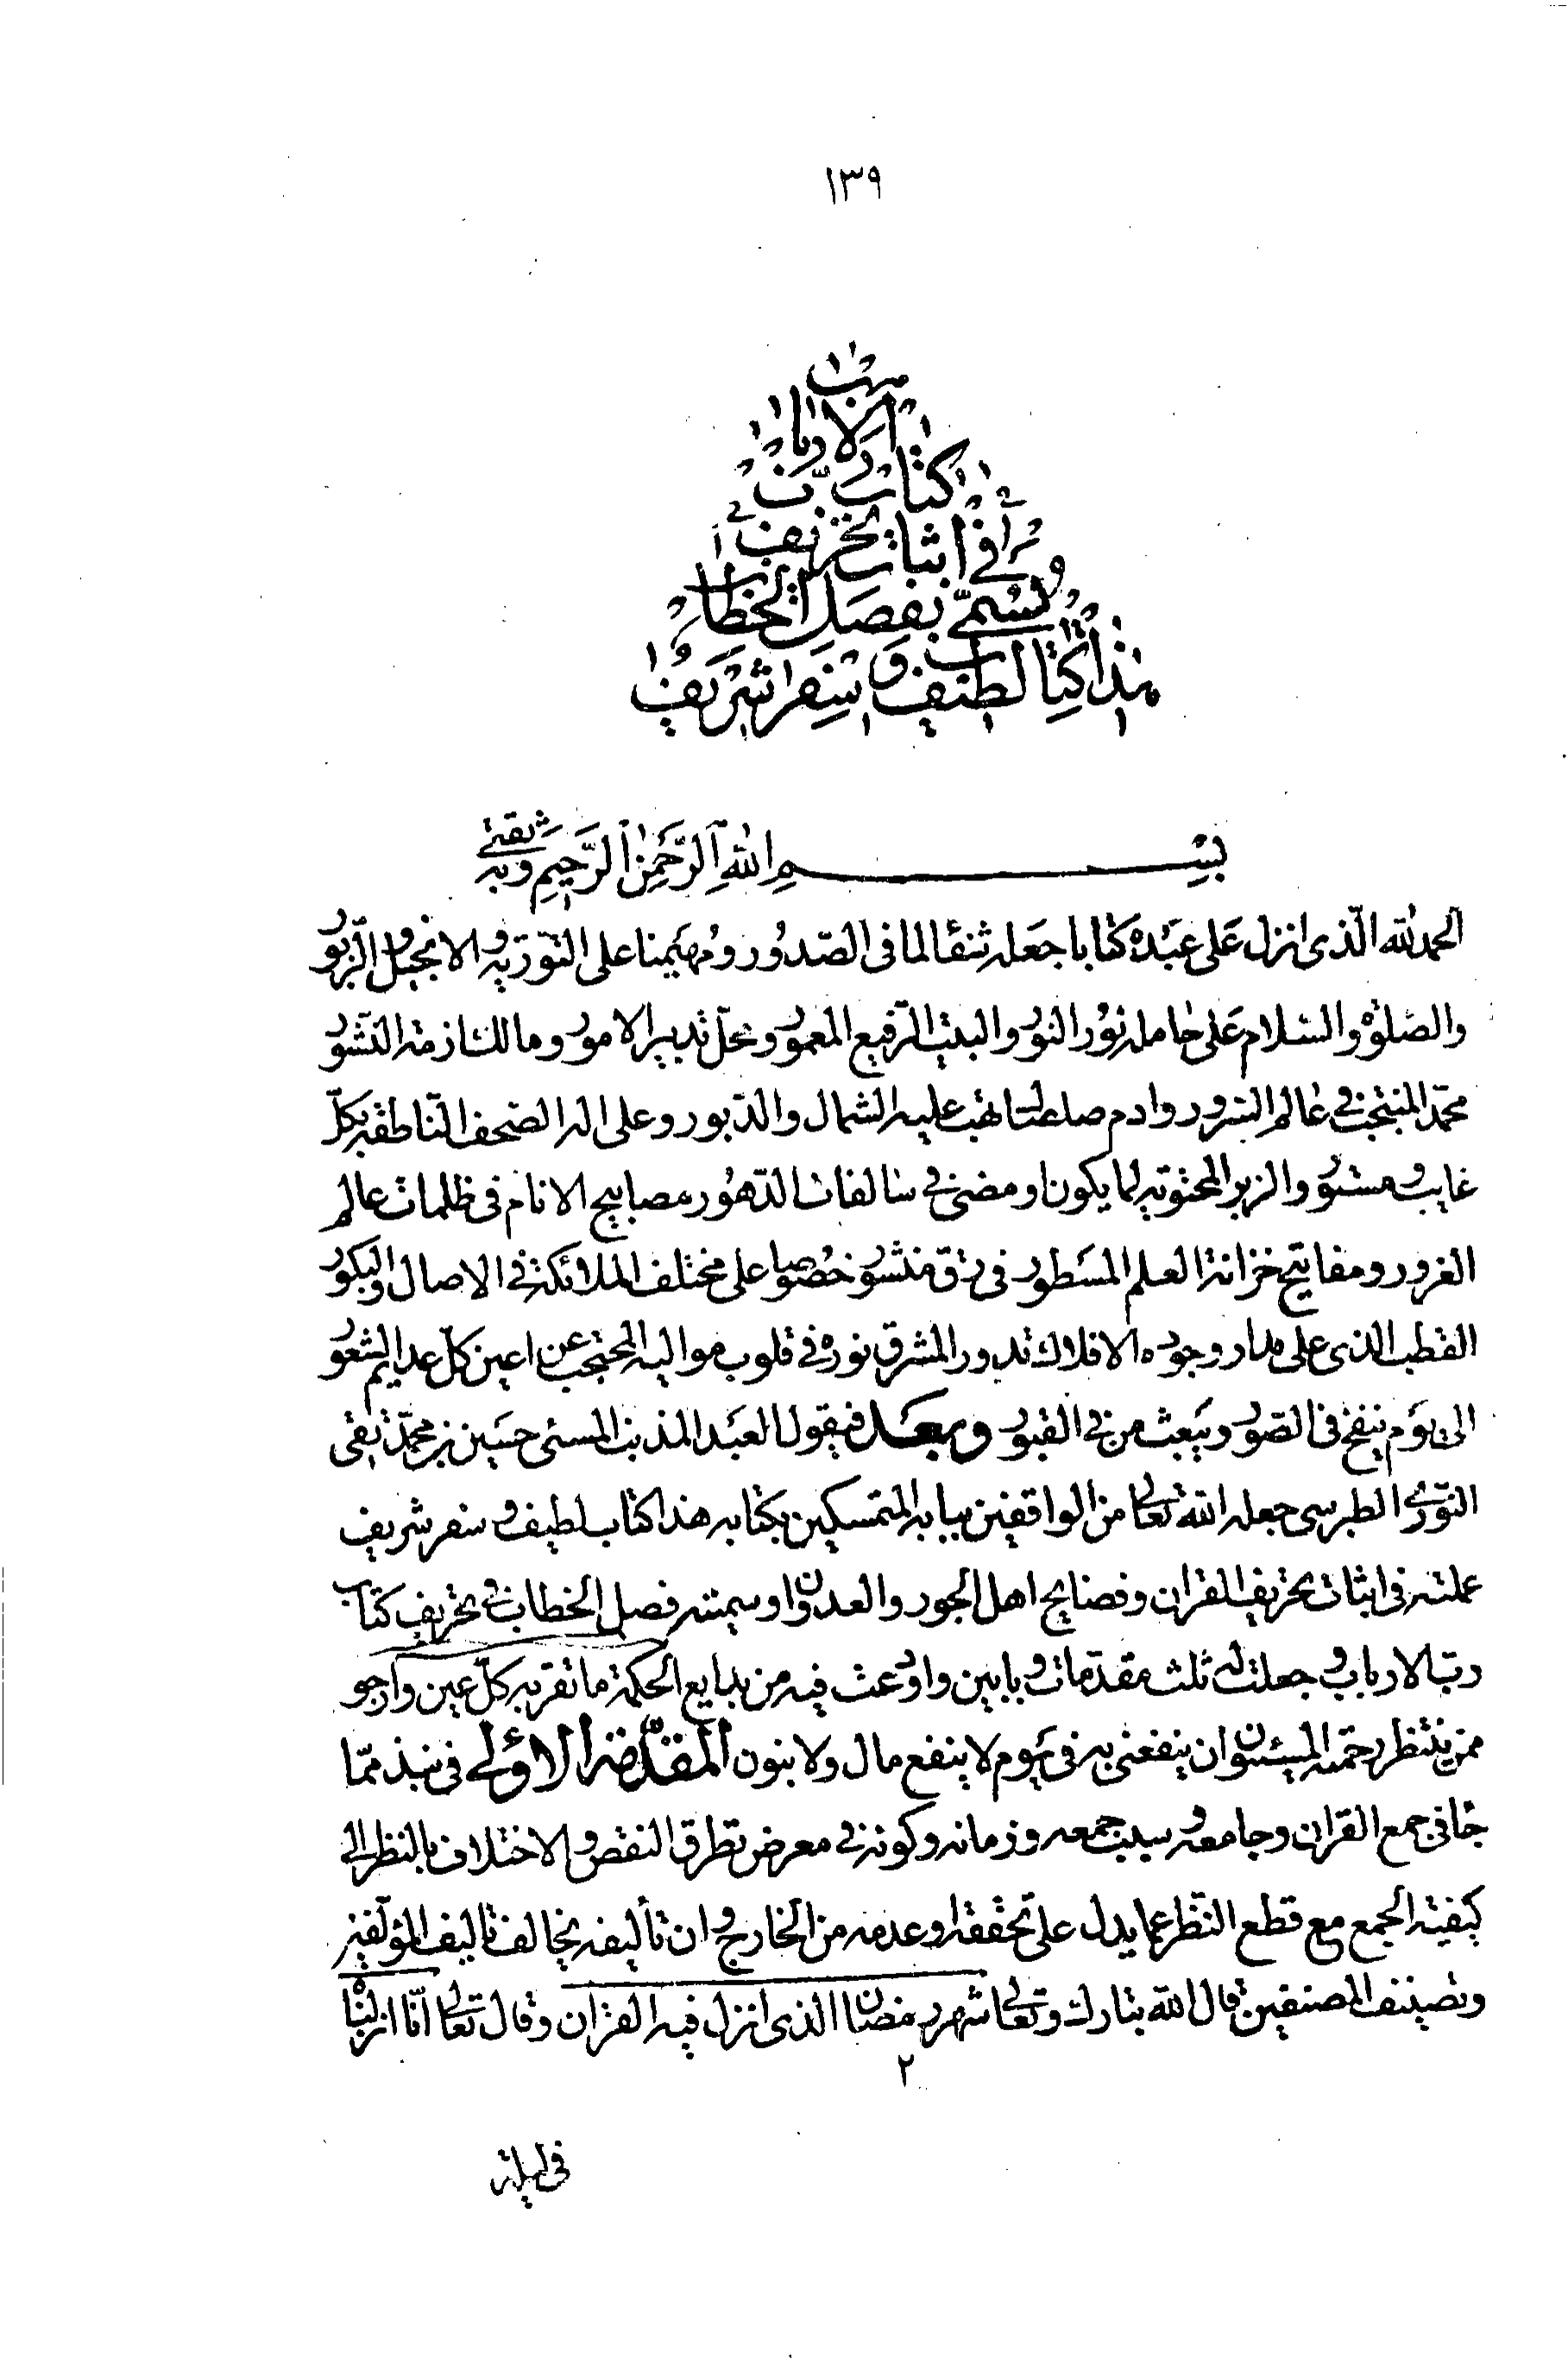 ١٣٩
كتاب رب الارباب
في اثبات تحريف
يسمى بفصل الخطاب
هذا كتاب لطيف و سفر شريف
بسم الله الرحمن الرحيم وبه ثقتي
الحمد لله الذى انزل على عبده كتابا جعله شفاء لما فى الصدور ومهيمنا على التورية والانجيل والزبور
والصلوة والسلام على حامل نور النور والبيت الرفيع المعمور ومحل تدبير الامور ومالك ازمة النشور
محمد المنتجب في عالم السرور وادم صلصلة تهب عليه الشمال والدبور وعلى اله الصحف الناطقة بكل
غايب ومستور والزبر المحتوية لما يكون او مضى في سالفات الدهور مصابيح الانام فى ظلمات عالم
الغرور ومفاتيح خزانة العلم المسطور فى رق منشور خصوصا على مختلف الملائكة في الاصال والبكور
القطب الذى على مدار وجوده الافلاك تدور المشرق نوره في قلوب مواليه المحتجب عن اعين كل عديم الشعور
الى يوم ينفخ فى الصور ويبعث من في القبور وبعد فيقول العبد المذنب المسئ حسين بن محمد تقى
النورى الطبرسى جعله الله تعالى من الواقفين ببابه المتمسكين بكتابه هذا كتاب لطيف وسفر شريف
عملته فى اثبات تحريف القران وفضايح اهل الجور والعدوان وسميته فصل الخطاب في تحريف كتاب
رب الارباب وجعلت له ثلث مقدمات وبابين واودعت فيه من بدايع الحكمة ما تقر به كل عين وارجو
ممن ينتظر رحمته المسيئون ان ينفعنى به فى يوم لا ينفع مال ولا بنون المقدمة الاولى فى نبذ مما
جاء فى جمع القران وجامعه وسبب جمعه وزمانه وكونه في معرض تطرق النقص والاختلاف بالنظر الى
كيفية الجمع مع قطع النظر عما يدل على تحققه او عدمه من الخارج وان تأليفه يخالف تاليف المؤلفين
وتصنيف المصنفين قال الله تبارك وتعالى شهر رمضان الذى انزل فيه القران وقال تعالى انا انزلناه
٢
فى ليلة